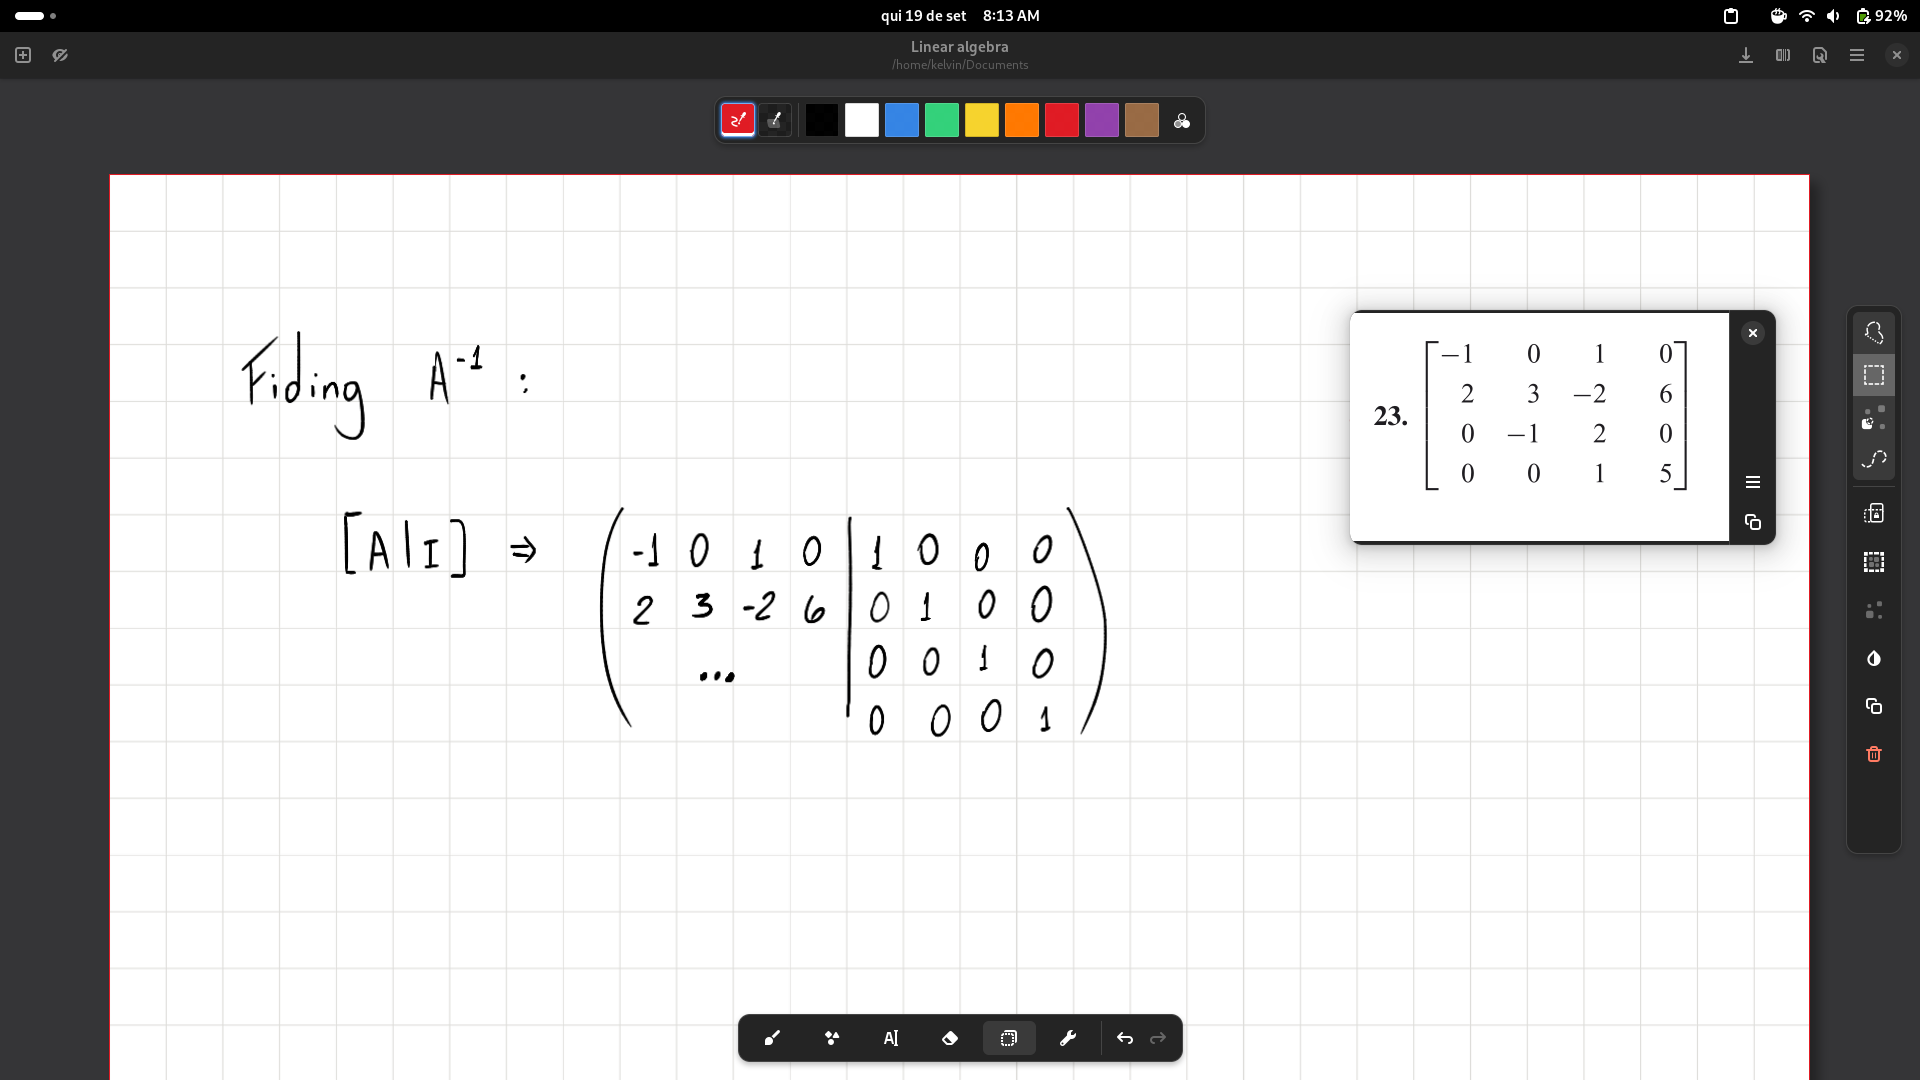 qui 19 de set 8:13 AM
92%
Linear algebra
/home/kelvin/Documents
Fiding A⁻¹ :
[A|I] ⇒
-1 0 1 0 | 1 0 0 0
2 3 -2 6 | 0 1 0 0
... | 0 0 1 0
| 0 0 0 1
23.
−1 0 1 0
2 3 −2 6
0 −1 2 0
0 0 1 5